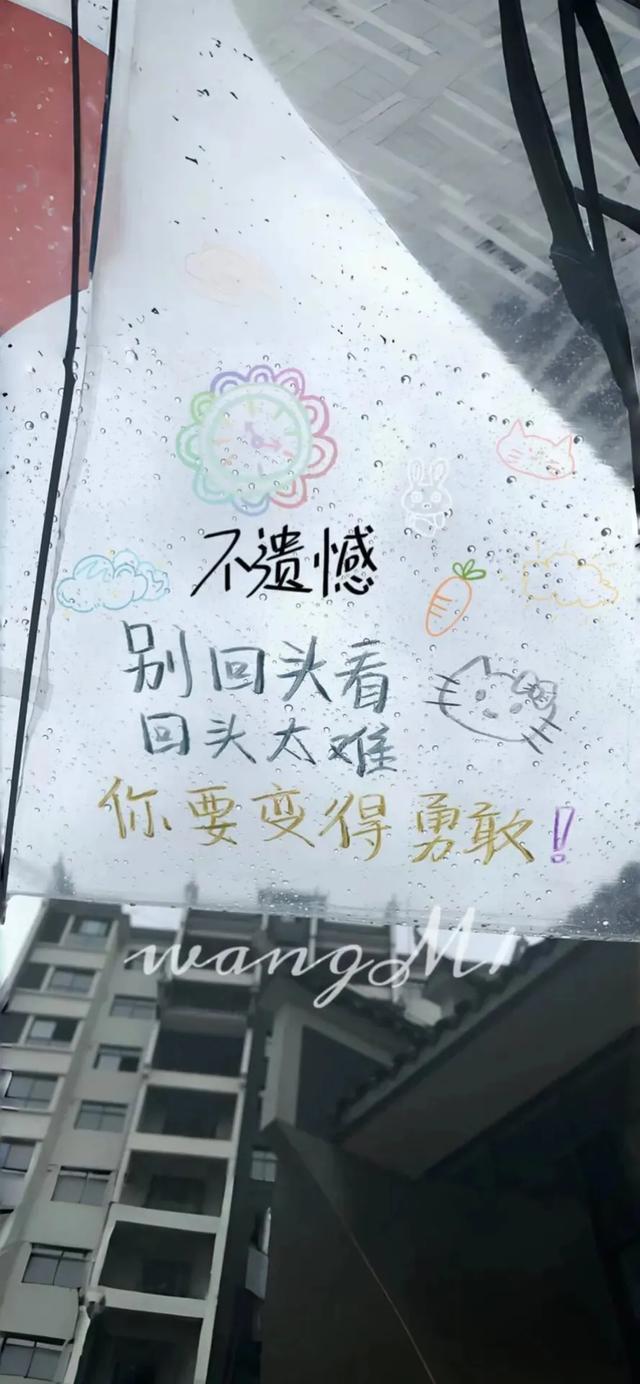 不遗憾
别回头看
回头太难
你要变得勇敢!
wangMi